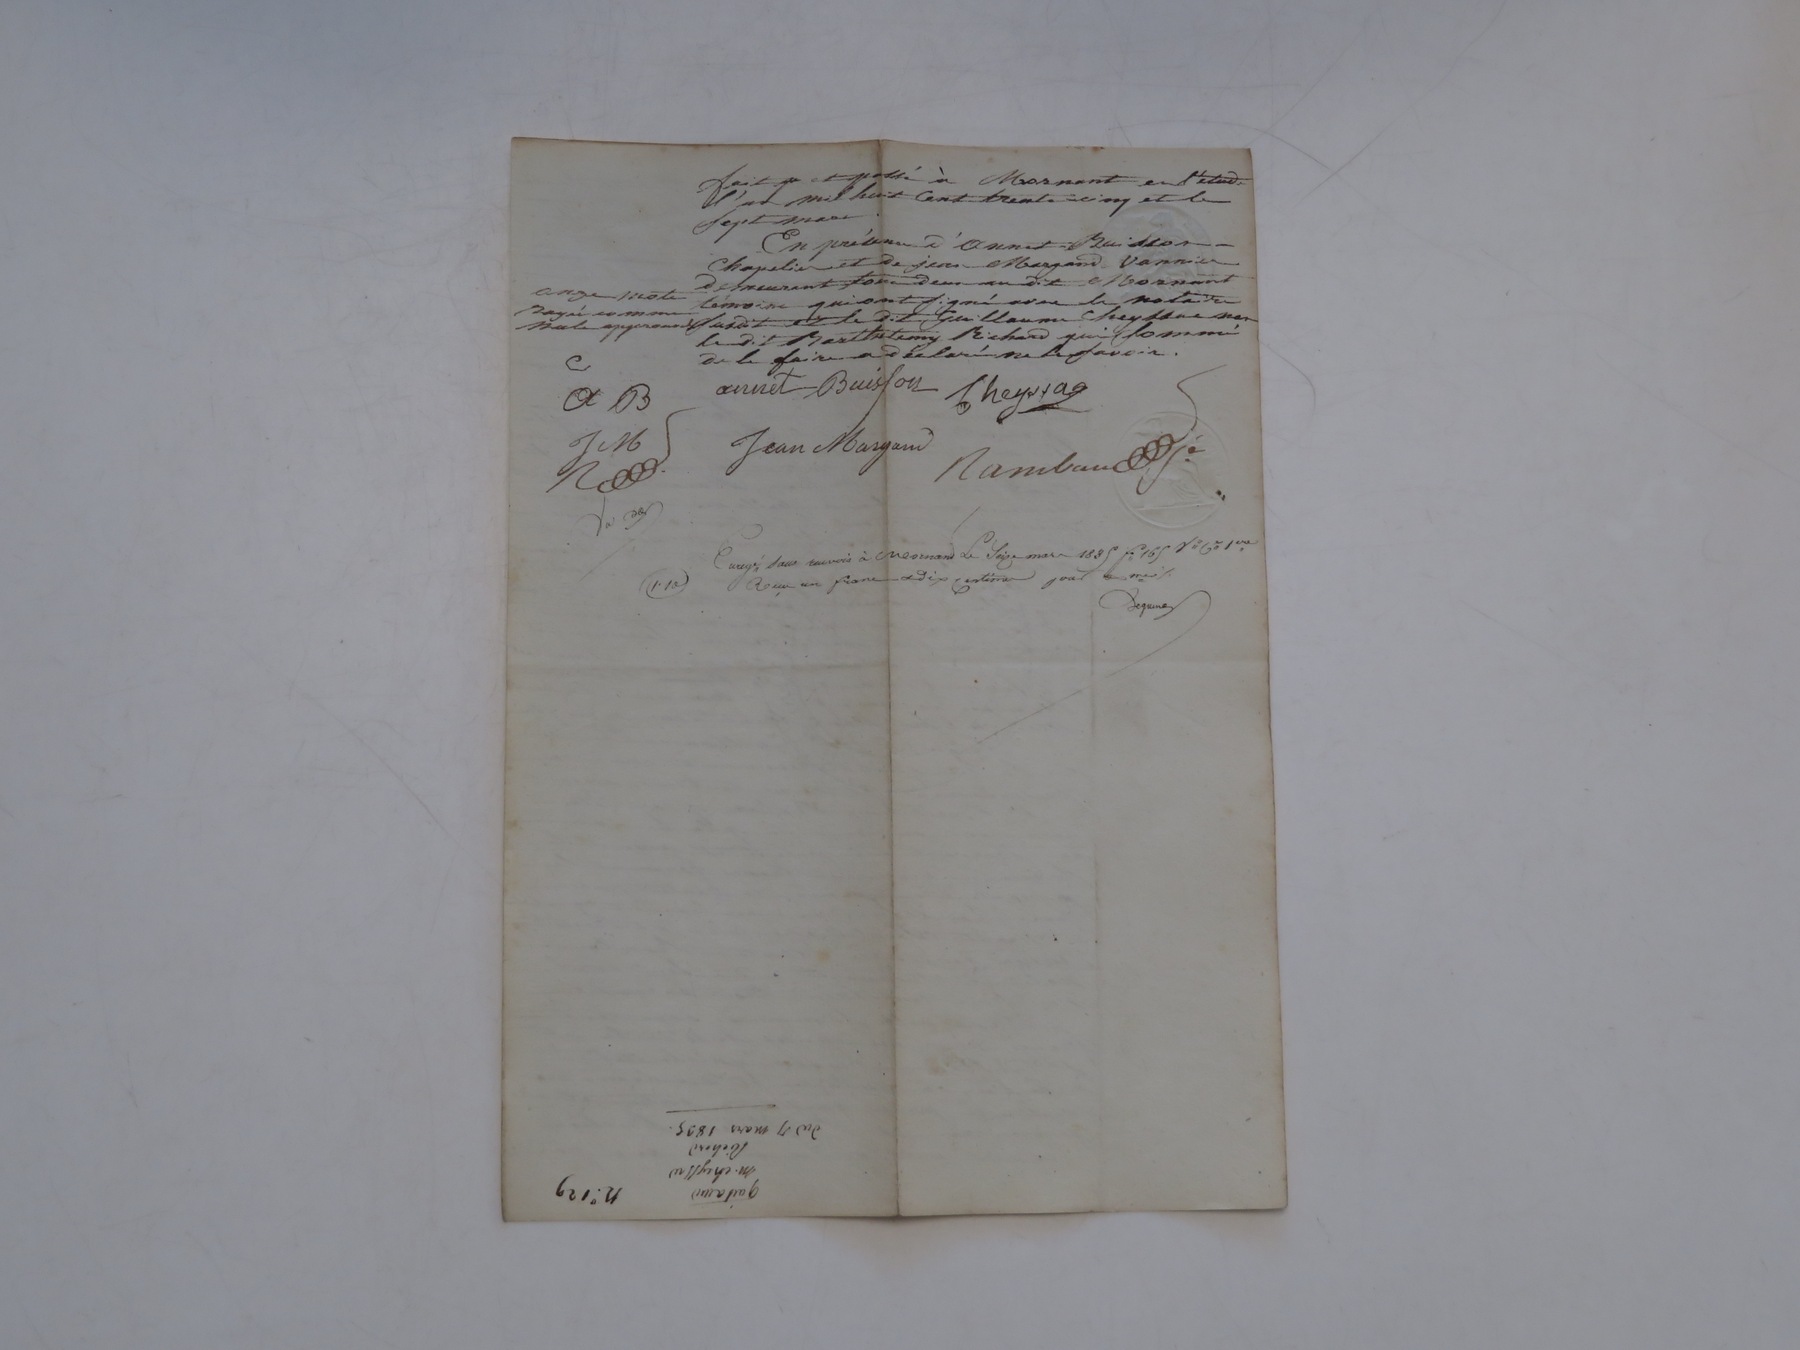 fait et passé à Mornant en l'étude
l'an mil huit Cent trente cinq et le
sept mars.
En présence d'Annet Buisson
Chapelier et de jean Margand Vannier
demeurant tous deux au dit Mornant
témoins qui ont signé avec le notaire
susdit et le dit Guillaume Cheyssac non
le dit Barthelemy Richard qui sommé
de le faire a déclaré ne le savoir.
onze mots
rayés comme
nuls approuvés
C
A B
J M
R
annet Buisson Cheyssac
Jean Margand
Rambaud
Enregé sans renvois à Mornant Le Seize mars 1835 fo 165 Vo Co 1re
Reçu un franc dix centimes pour
(1.10)
du 7 mars 1835.
Richard
quitance
No. 129